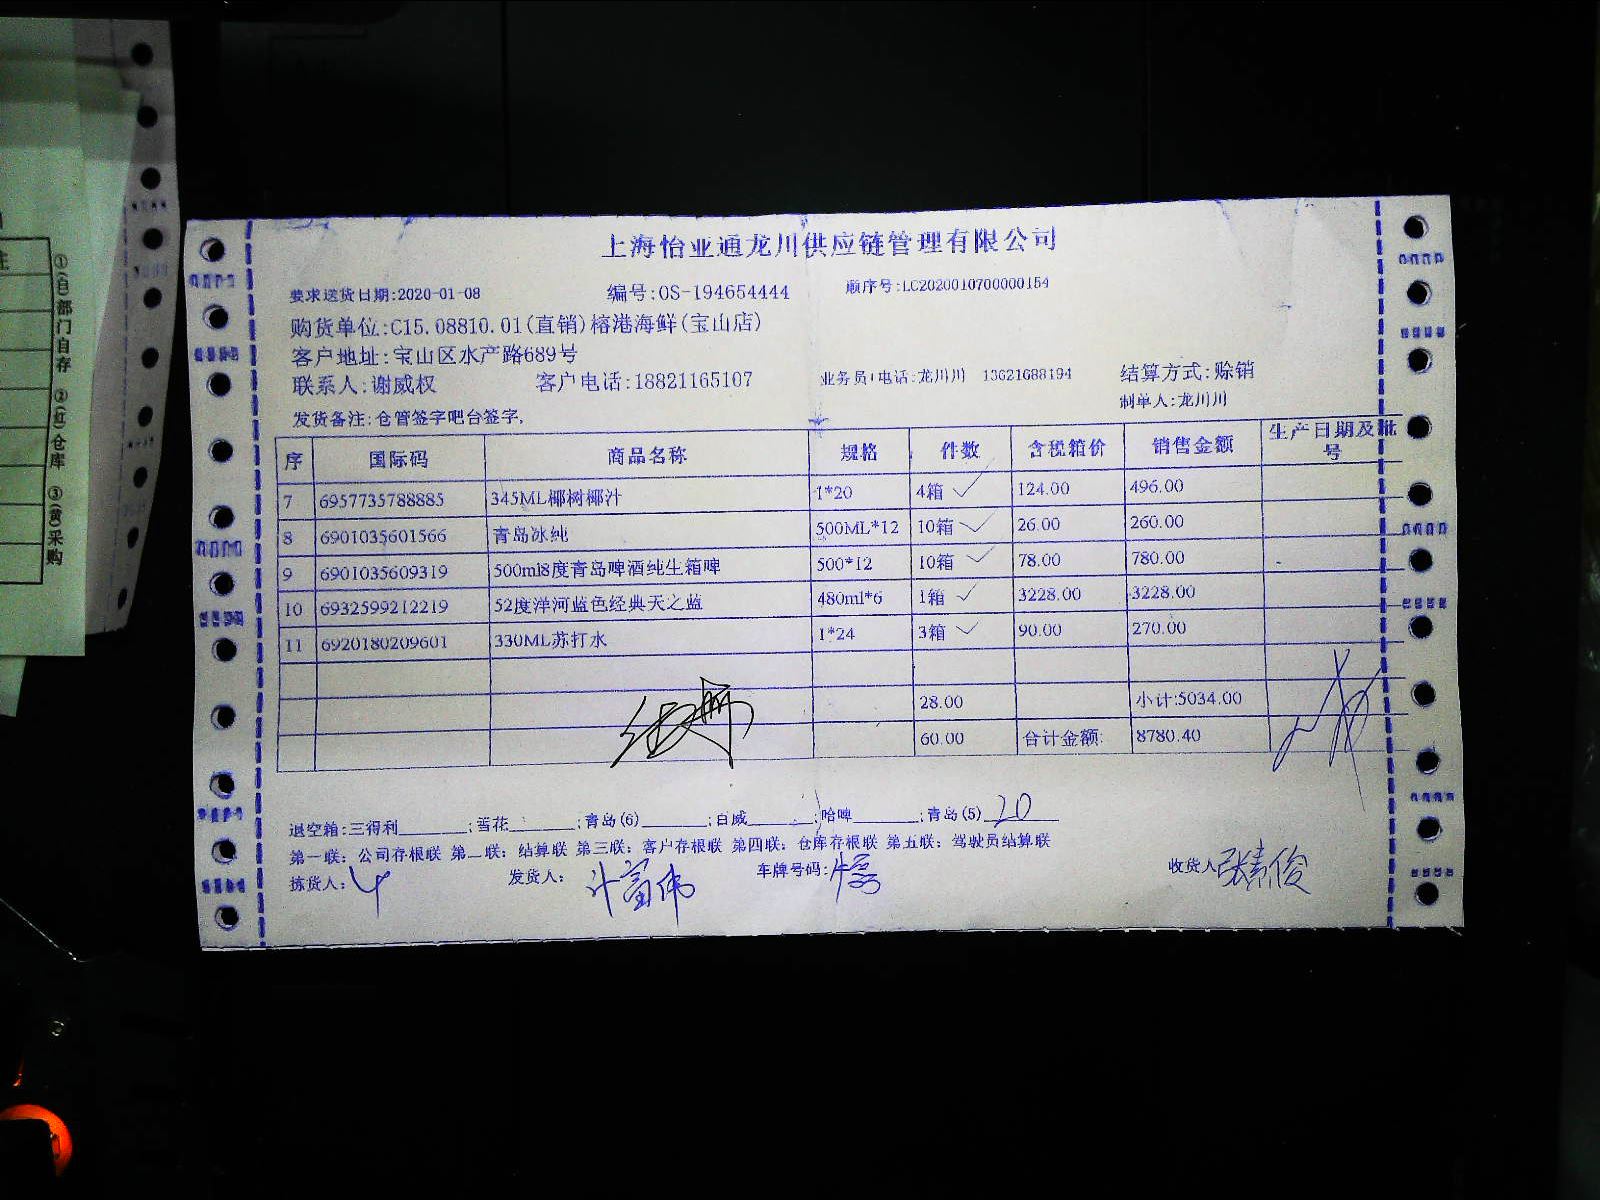 上海怡亚通龙川供应链管理有限公司
要求送货日期:2020-01-08 编号:OS-194654444 顺序号:LC2020010700000154
购货单位:C15.08810.01(直销)榕港海鲜(宝山店)
客户地址:宝山区水产路689号
联系人:谢威权 客户电话:18821165107 业务员+电话:龙川川 13621688194 结算方式:赊销
制单人:龙川川
发货备注:仓管签字吧台签字,
序 国际码 商品名称 规格 件数 含税箱价 销售金额 生产日期及批号
7 6957735788885 345ML椰树椰汁 1*20 4箱 124.00 496.00
8 6901035601566 青岛冰纯 500ML*12 10箱 26.00 260.00
9 6901035609319 500ml8度青岛啤酒纯生箱啤 500*12 10箱 78.00 780.00
10 6932599212219 52度洋河蓝色经典天之蓝 480ml*6 1箱 3228.00 3228.00
11 6920180209601 330ML苏打水 1*24 3箱 90.00 270.00
28.00 小计:5034.00
60.00 合计金额: 8780.40
退空箱:三得利______;雪花______;青岛(6)______;百威______;哈啤______;青岛(5) 20
第一联：公司存根联 第二联：结算联 第三联：客户存根联 第四联：仓库存根联 第五联：驾驶员结算联
拣货人: 发货人: 车牌号码: 收货人
①(白)部门自存 ②(红)仓库 ③(黄)采购